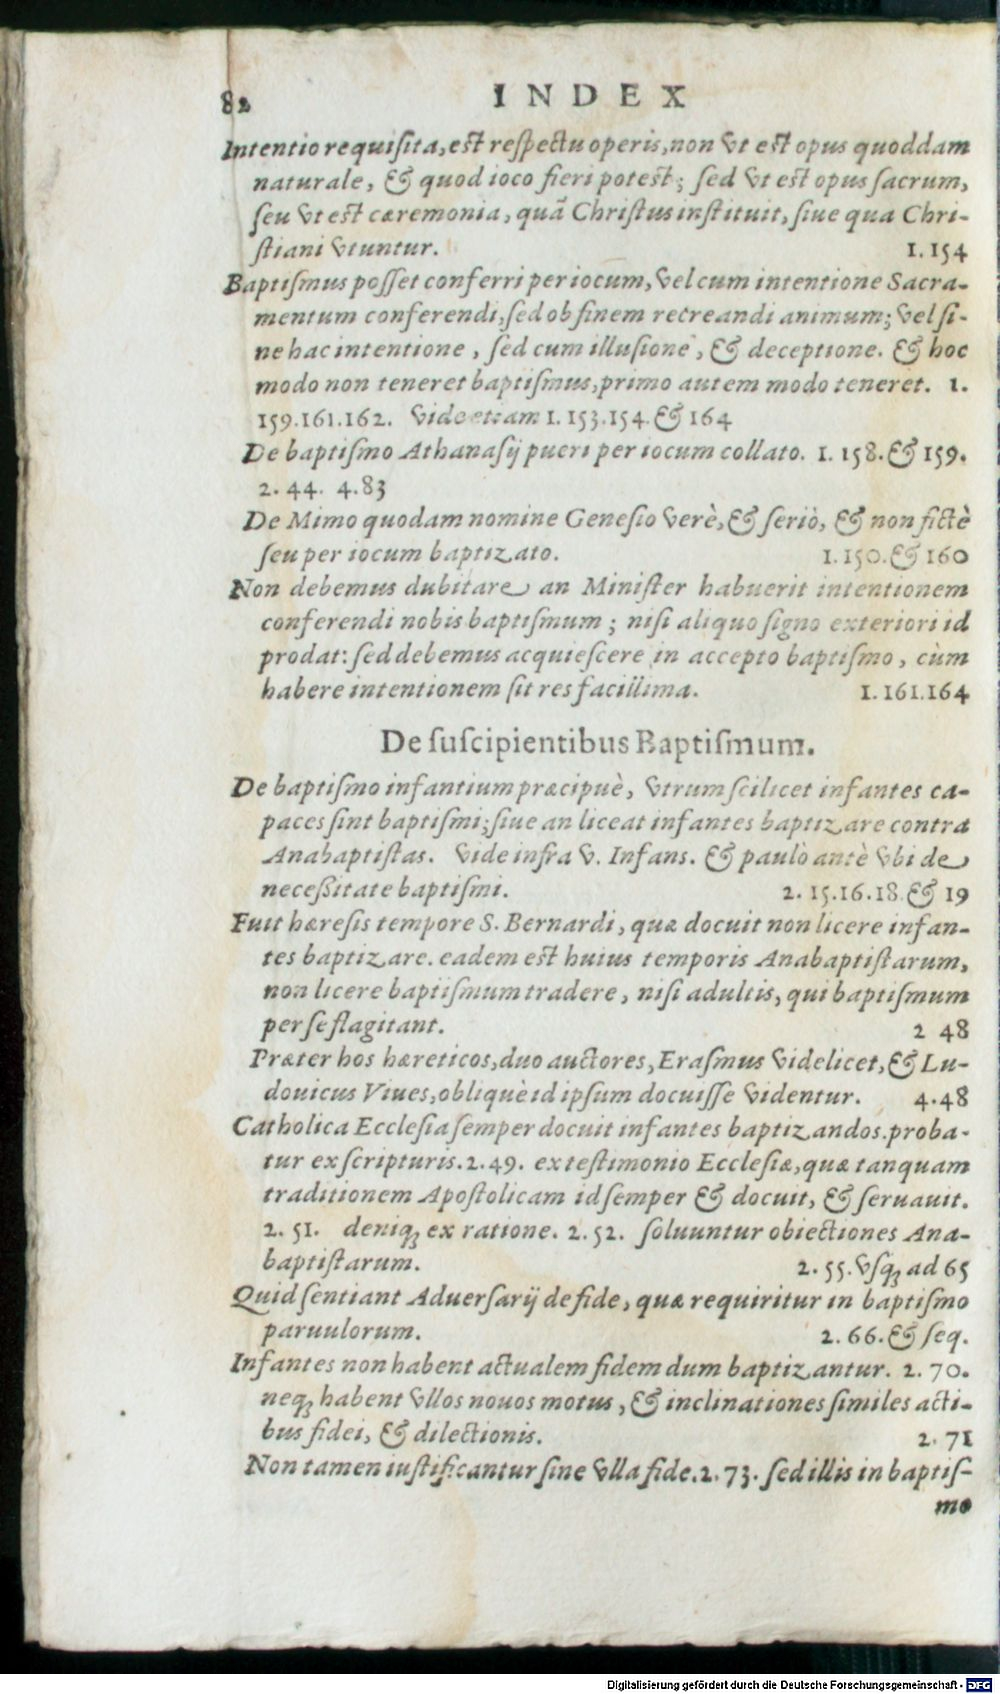 82 INDEX
Intentio requiſita, eſt reſpectu operis, non vt eſt opus quoddam
naturale, & quod ioco fieri poteſt; ſed vt eſt opus ſacrum,
ſeu vt eſt cæremonia, quā Chriſtus inſtituit, ſiue qua Chri-
ſtiani vtuntur. 1. 154
Baptiſmus poſſet conferri per iocum, vel cum intentione Sacra-
mentum conferendi, ſed ob finem recreandi animum; vel ſi-
ne hac intentione, ſed cum illuſione, & deceptione. & hoc
modo non teneret baptiſmus, primo autem modo teneret. 1.
159. 161. 162. Vide etiam 1. 153. 154. & 164
De baptiſmo Athanaſij pueri per iocum collato. 1. 158. & 159.
2. 44. 4. 83
De Mimo quodam nomine Geneſio verè, & ſeriò, & non fictè
ſeu per iocum baptizato. 1. 150. & 160
Non debemus dubitare an Miniſter habuerit intentionem
conferendi nobis baptiſmum; niſi aliquo ſigno exteriori id
prodat: ſed debemus acquieſcere in accepto baptiſmo, cùm
habere intentionem ſit res facillima. 1. 161. 164
De ſuſcipientibus Baptiſmum.
De baptiſmo infantium præcipuè, vtrum ſcilicet infantes ca-
paces ſint baptiſmi; ſiue an liceat infantes baptizare contra
Anabaptiſtas. Vide infra V. Infans. & paulò antè vbi de
neceßitate baptiſmi. 2. 15. 16. 18. & 19
Fuit hæreſis tempore S. Bernardi, quæ docuit non licere infan-
tes baptizare. eadem eſt huius temporis Anabaptiſtarum,
non licere baptiſmum tradere, niſi adultis, qui baptiſmum
per ſe flagitant. 2 48
Præter hos hæreticos, duo auctores, Eraſmus videlicet, & Lu-
douicus Viues, obliquè id ipſum docuiſſe videntur. 4. 48
Catholica Eccleſia ſemper docuit infantes baptizandos. proba-
tur ex ſcripturis. 2. 49. ex teſtimonio Eccleſiæ, quæ tanquam
traditionem Apoſtolicam id ſemper & docuit, & ſeruauit.
2. 51. deniq; ex ratione. 2. 52. ſoluuntur obiectiones Ana-
baptiſtarum. 2. 55. vſq; ad 65
Quid ſentiant Aduerſarij de fide, quæ requiritur in baptiſmo
paruulorum. 2. 66. & ſeq.
Infantes non habent actualem fidem dum baptizantur. 2. 70.
neq; habent vllos nouos motus, & inclinationes ſimiles acti-
bus fidei, & dilectionis. 2. 71
Non tamen iuſtificantur ſine vlla fide. 2. 73. ſed illis in baptiſ-
mo
Digitalisierung gefördert durch die Deutsche Forschungsgemeinschaft - DFG